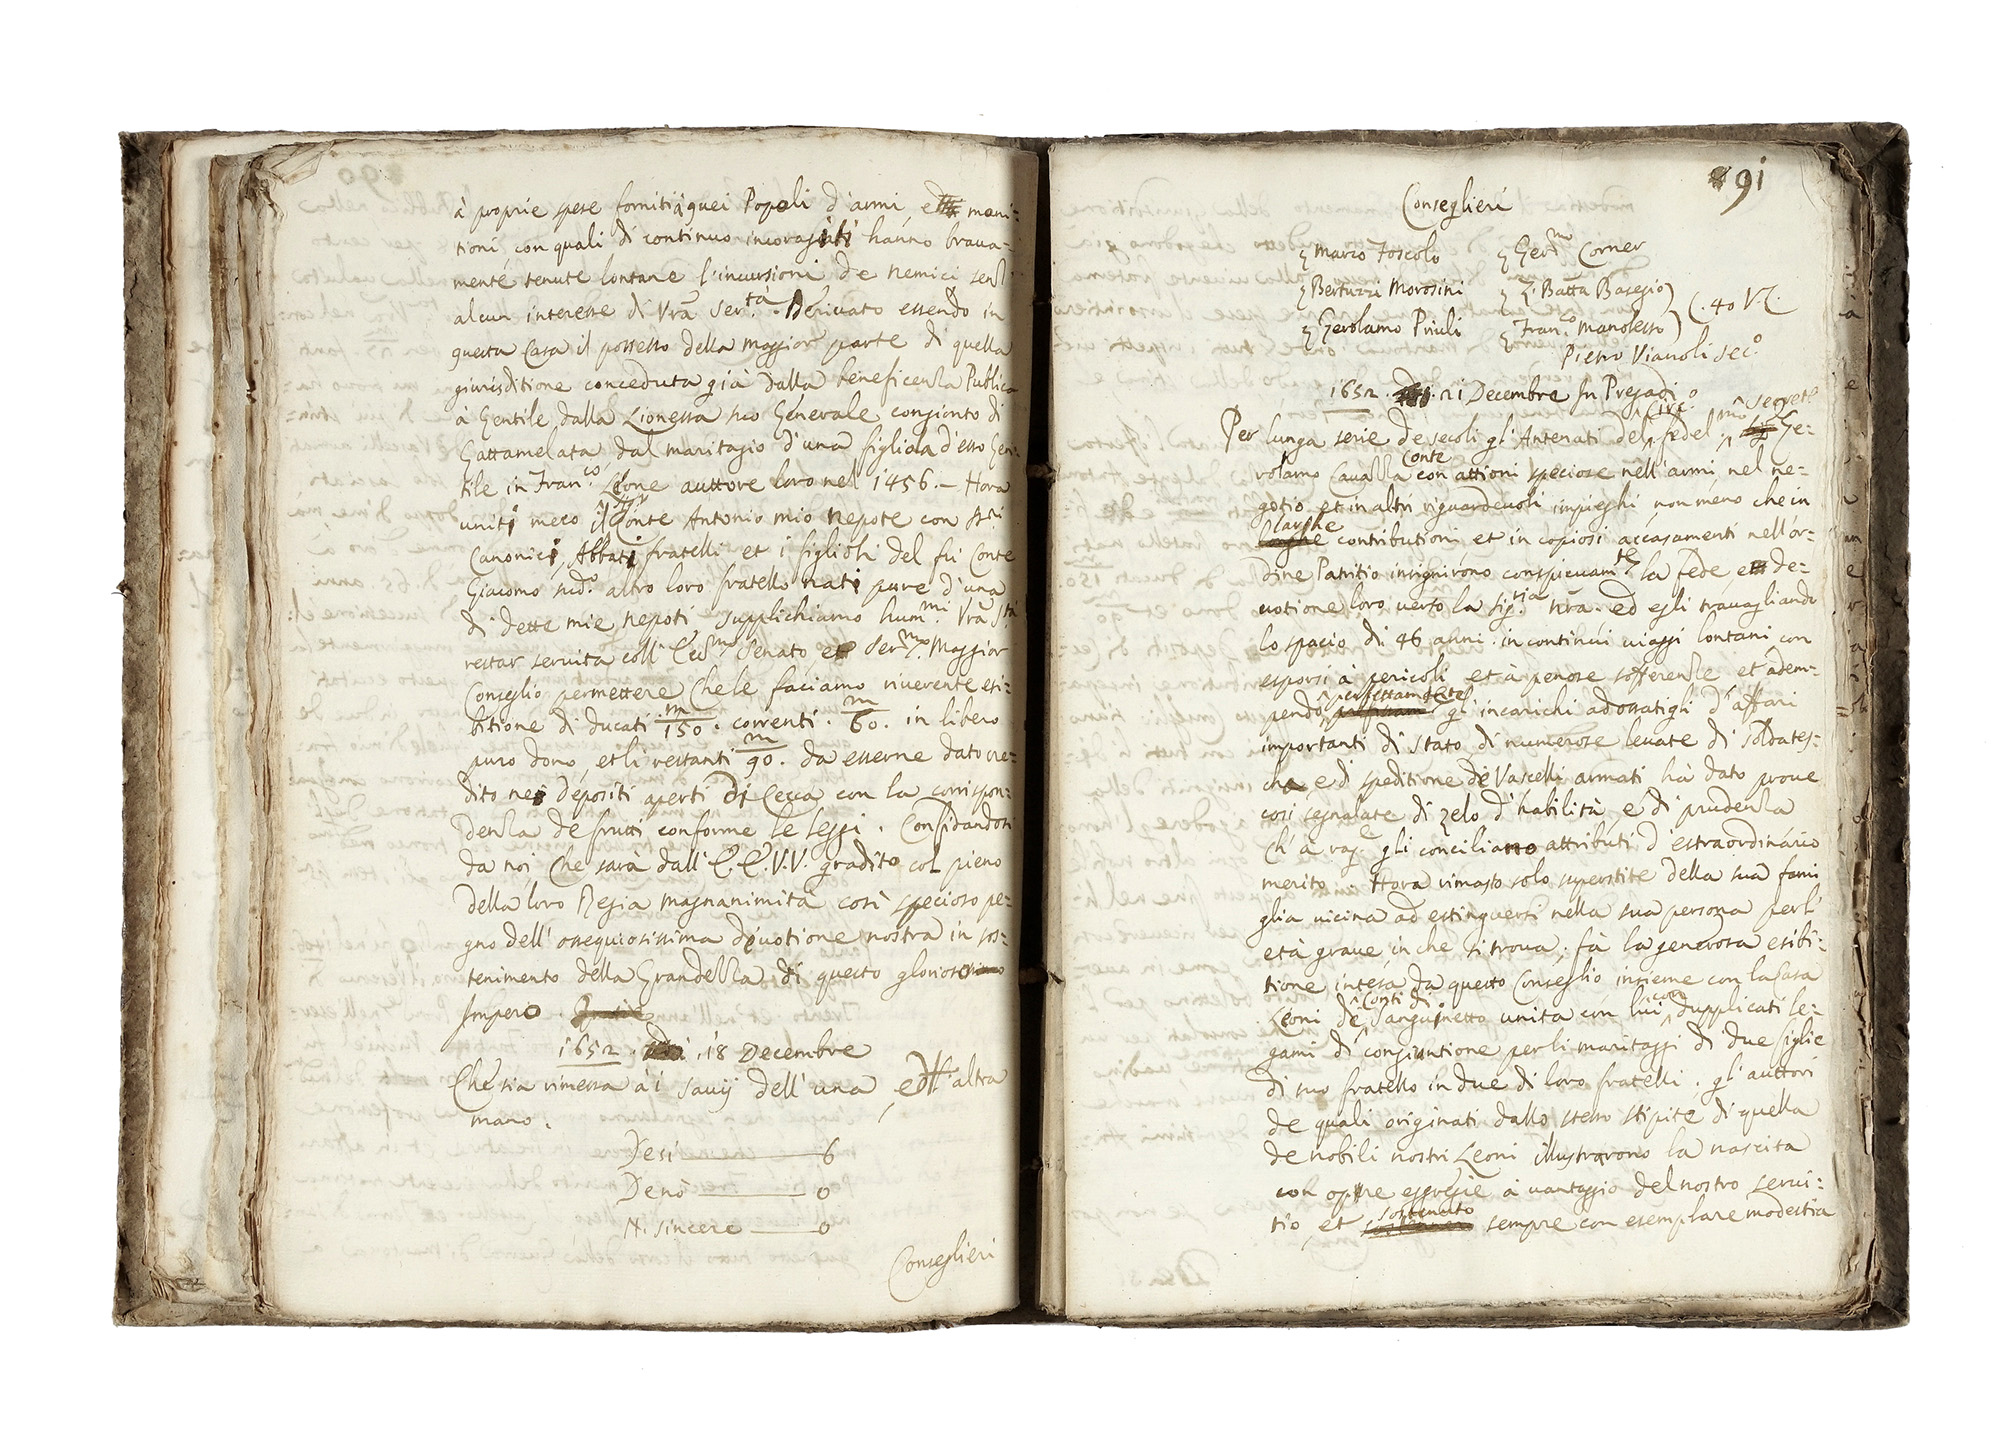 à proprie spese forniti quei Popoli d'armi, e moni:
tioni, con quali di continuo incoragiti hanno braua-
mente tenute lontane l'incursioni de nemici senz'
alcun interesse di Vrã Ser.tà. Deriuato essendo in
questa Casa il possesso della maggior parte di quella
giurisditione conceduta già dalla beneficenza Publica
à Gentile dalla Lionessa suo Generale congionto di
Gattamelata dal maritagio d'una figliola d'esso Gen-
tile in Fran.co Leone auttore loro nel 1456.– Hora
uniti meco il Conte Antonio mio nepote con suoi
Canonici, Abbati fratelli et i figlioli del fù Conte
Giacomo sud.o altro loro fratello nati pure d'una
di dette mie nepoti supplichiamo hum.mi Vrã Stà
restar seruita coll' Ecc.mo Senato, et Ser.mo Maggior
Conseglio permettere che le faciamo riuerente esi-
bitione di ducati m/150. correnti. m/60. in libero
puro dono, et li restanti m/90. da esserne dato cre-
dito nei depositi aperti di Cecca con la corrispon-
denza de frutti conforme le leggi. Confidandosi
da noi, che sarà dall' E.E.V.V. gradito col pieno
della loro Regia magnanimità così specioso pe-
gno dell' ossequiosissima deuotione nostra in sos-
tenimento della Grandezza di questo glorioso
Impero
1652. 18 Decembre
Che sia rimessa à i Sauij dell' una, ed altra
mano.
Desì — 6
Denò — 0
N. sincere — 0
Conseglieri
91
Conseglieri
Marco Foscolo Ger.mo Corner
Bertuzzi Morosini Z. Batta Basegio
Gerolamo Priuli Fran.co Manolesso (.40 V.Z.
Pietro Vianoli Sec.o
1652. 21 Decembre In Pregadi
Per lunga serie de secoli gl' Antenati del Circ.o fedel.mo Segret.o Ge-
rolamo Caualla Conte con attioni speciose nell'armi, nel ne-
gotio, et in altri riguardeuoli impieghi, non meno che in
larghe contributioni, et in copiosi accasamenti nell'or-
dine Patritio insignirono conspicuam.te la fede e de-
uotione loro uerso la Sig.ria Nrã. ed egli trauagliando
lo spacio di 46 anni in continui uiaggi lontani con
esporsi à pericoli et à penose sofferenze et adem-
pendo perfettamente gl' incarichi adossatigli d'affari
importanti di stato di numerose leuate di soldates-
che e di speditione de Vascelli armati hà dato proue
così segnalate di zelo d'habilità, e di prudenza
ch' à rag.e gli conciliano attributi d'estraordinario
merito. Hora rimasto solo superstite della sua fami
glia uicina ad estinguersi nella sua persona per l'
età graue in che si troua; fà la generosa esibi-
tione intesa da questo Conseglio insieme con la Casa
Leoni de Conti di Sanguinetto unita con lui con duplicati le-
gami di congiuntione per li maritaggi di due figlie
di suo fratello in due di loro fratelli. gl' auttori
de quali originati dallo stesso stipite di quella
de nobili nostri Leoni illustrarono la nascita
con opere egregie à uantaggio del nostro serui-
tio, et sostenuto sempre con esemplare modestia